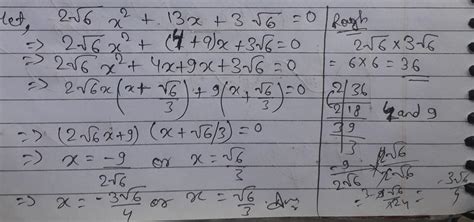 let, 2√6 x² + 13x + 3√6 = 0
⇒ 2√6 x² + (4 + 9)x + 3√6 = 0
⇒ 2√6 x² + 4x + 9x + 3√6 = 0
⇒ 2√6x(x + √6/3) + 9(x, √6/3) = 0
⇒ (2√6x + 9) (x + √6/3) = 0
⇒ x = -9/2√6 or x = √6/3
⇒ x = -3√6/4 or x = √6/3 Ans
Rough
2√6 × 3√6
= 6 × 6 = 36
2|36
2|18
3|9
3
4 and 9
-9/2√6 × 2√6/2√6